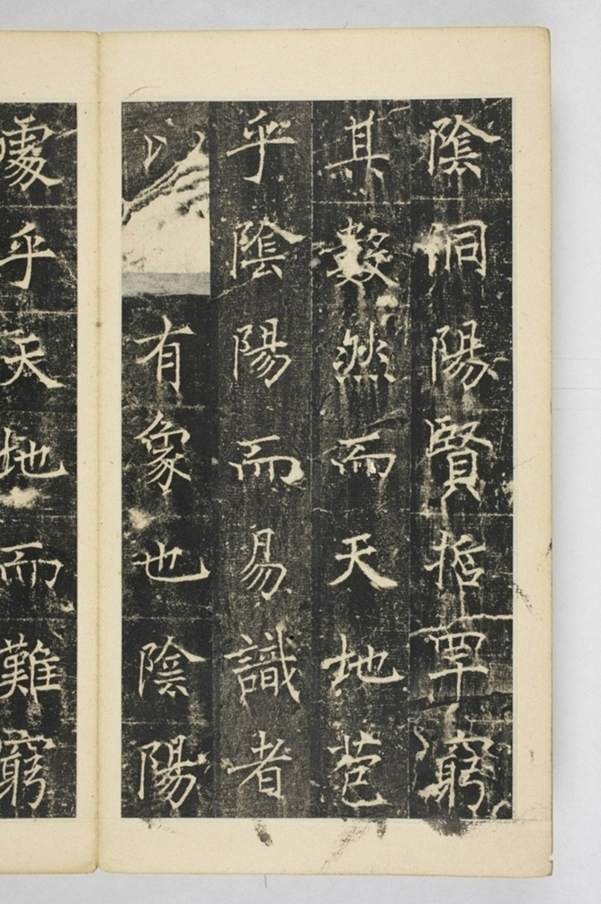 陰洞陽賢哲罕窮
其數然而天地苞
乎陰陽而易識者
以有象也陰陽
處乎天地而難窮